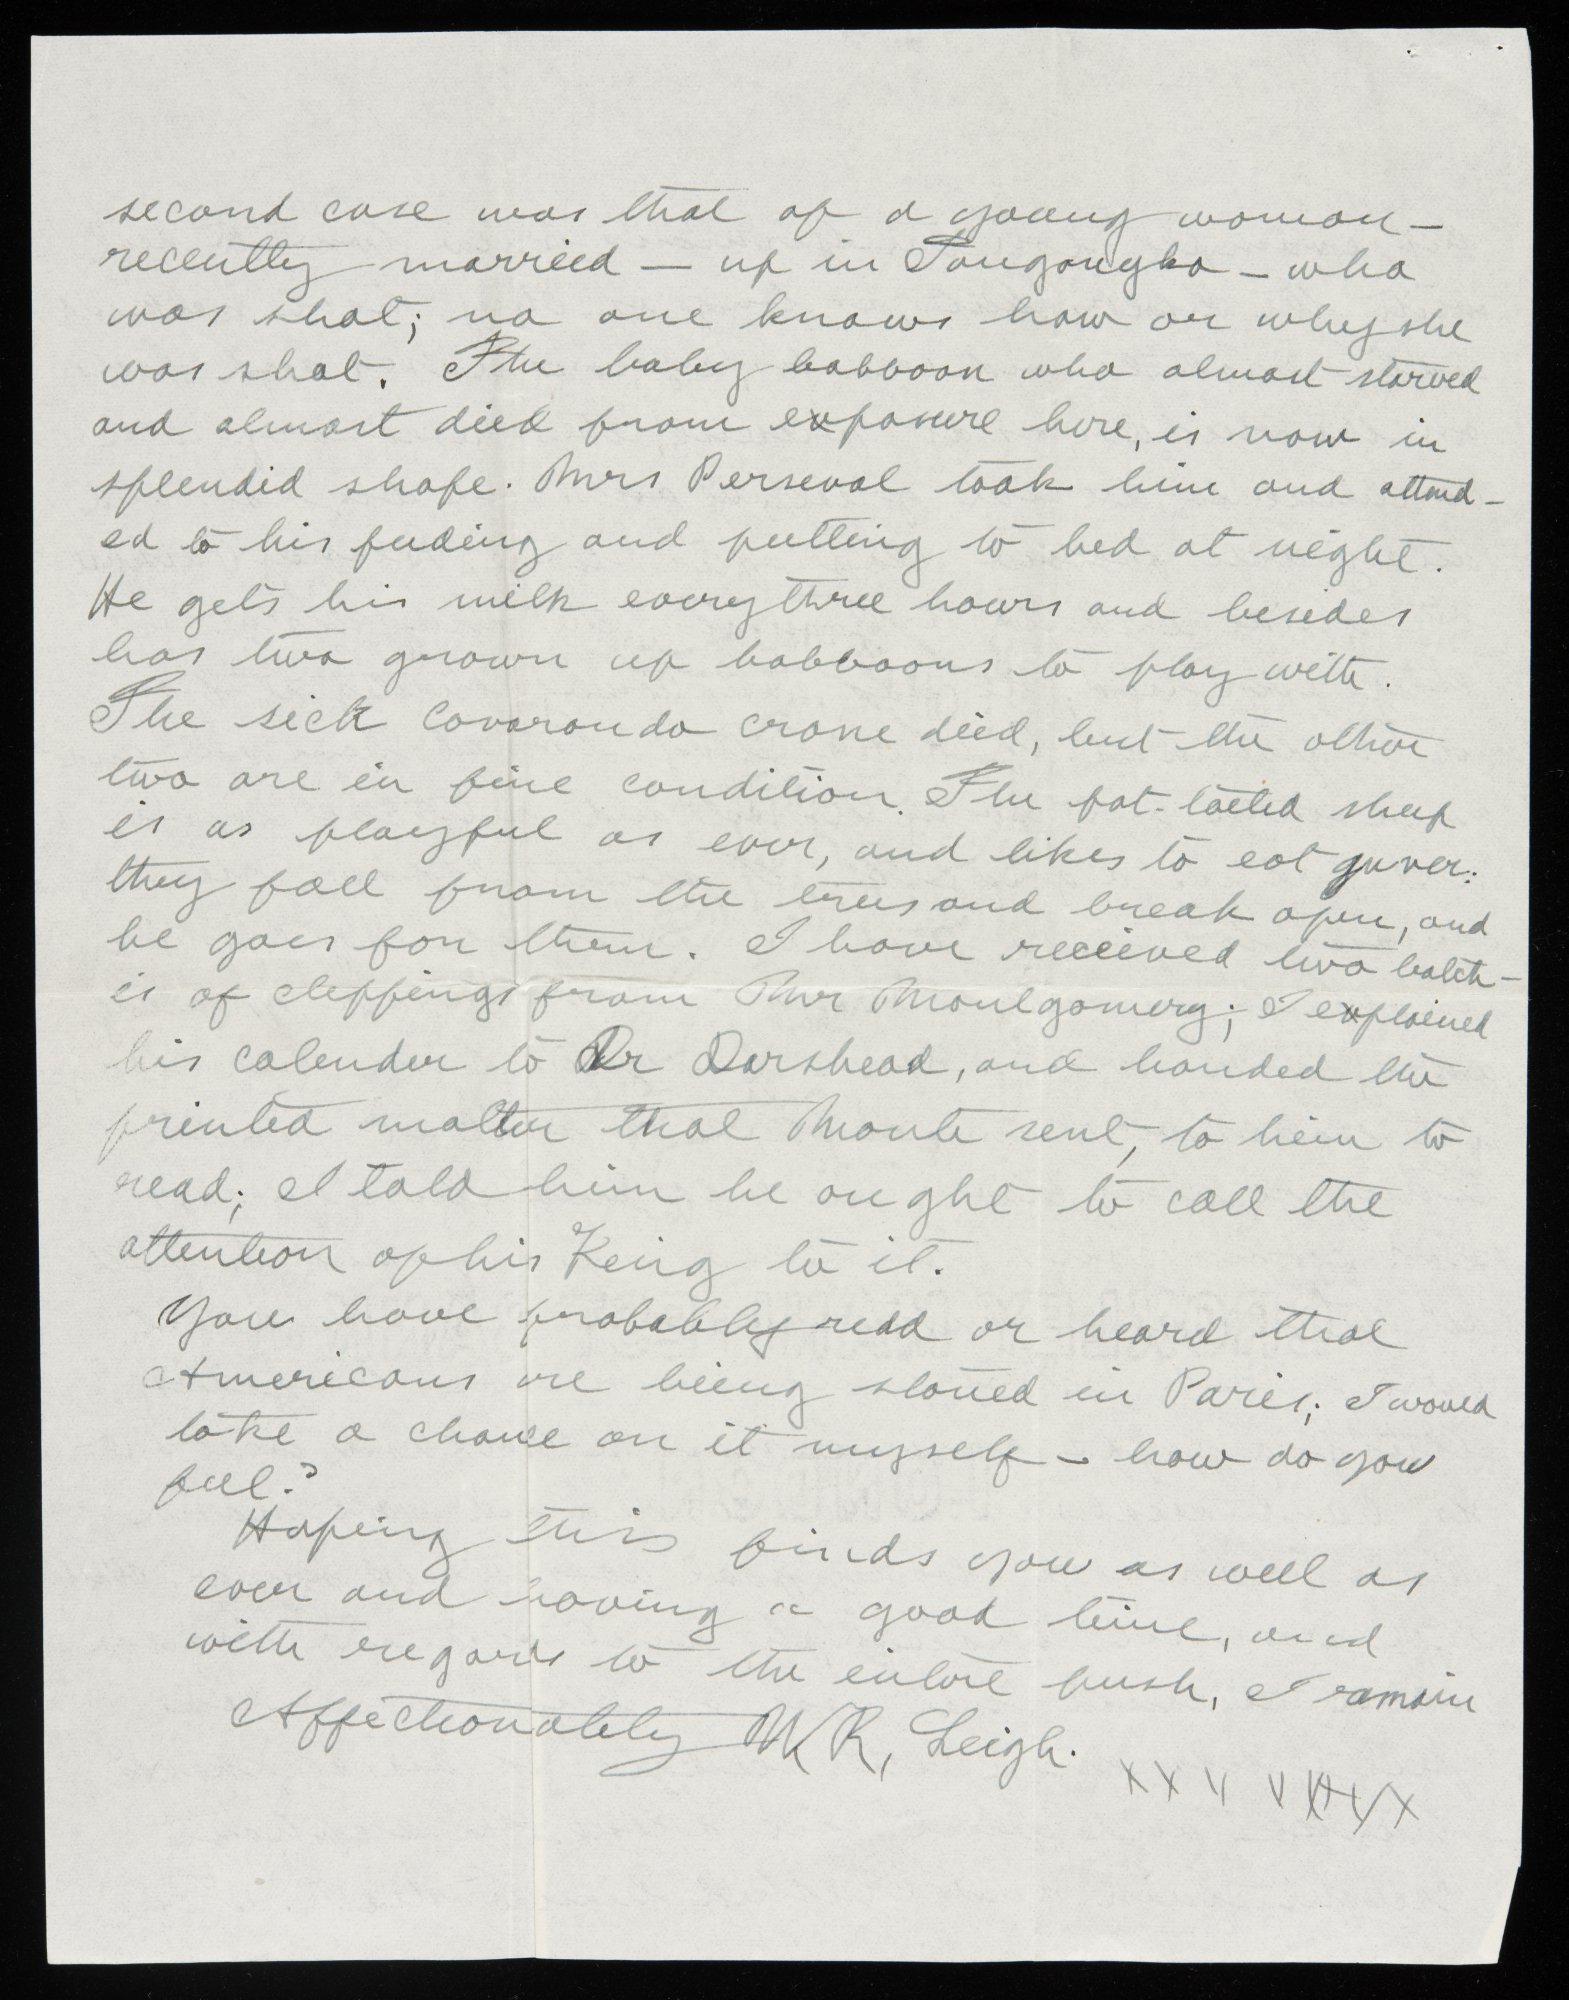 second case was that of a young woman –
recently married – up in Tanganyka – who
was shot; no one knows how or why she
was shot. The baby babboon who almost starved
and almost died from exposure here, is now in
splendid shape. Mrs Perseval took him and attend-
ed to his feeding and putting to bed at night.
He gets his milk every three hours and besides
has two grown up babboons to play with.
The sick Cavarondo crane died, but the other
two are in fine condition. The fat-tailed sheep
is as playful as ever, and likes to eat
they fall from the trees and break open, and
he goes for them. I have received two batch-
es of clippings from Mr Montgomery; I explained
his calender to Dr Darshead, and handed the
printed matter that Monte sent, to him to
read; I told him he ought to call the
attention of his King to it.
You have probably read or heard that
Americans are being stoned in Paris; I would
take a chance on it myself – how do you
feel?
Hoping this finds you as well as
ever and having a good time, and
with regards to the entire push, I remain
Affectionately W R, Leigh.